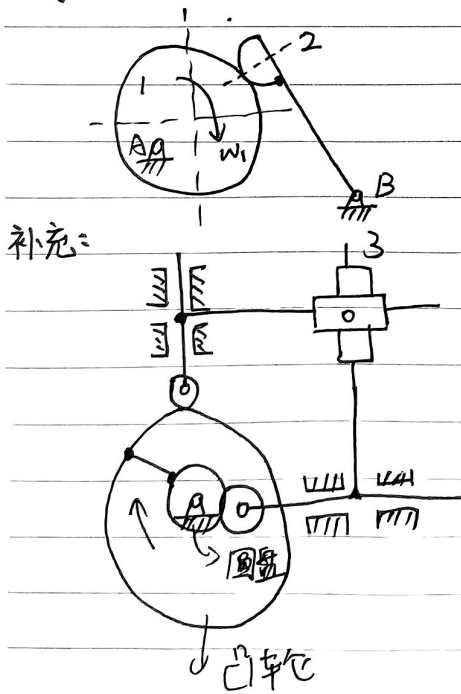 2
1
A
W₁
B
补充:
3
圆盘
凸车仑